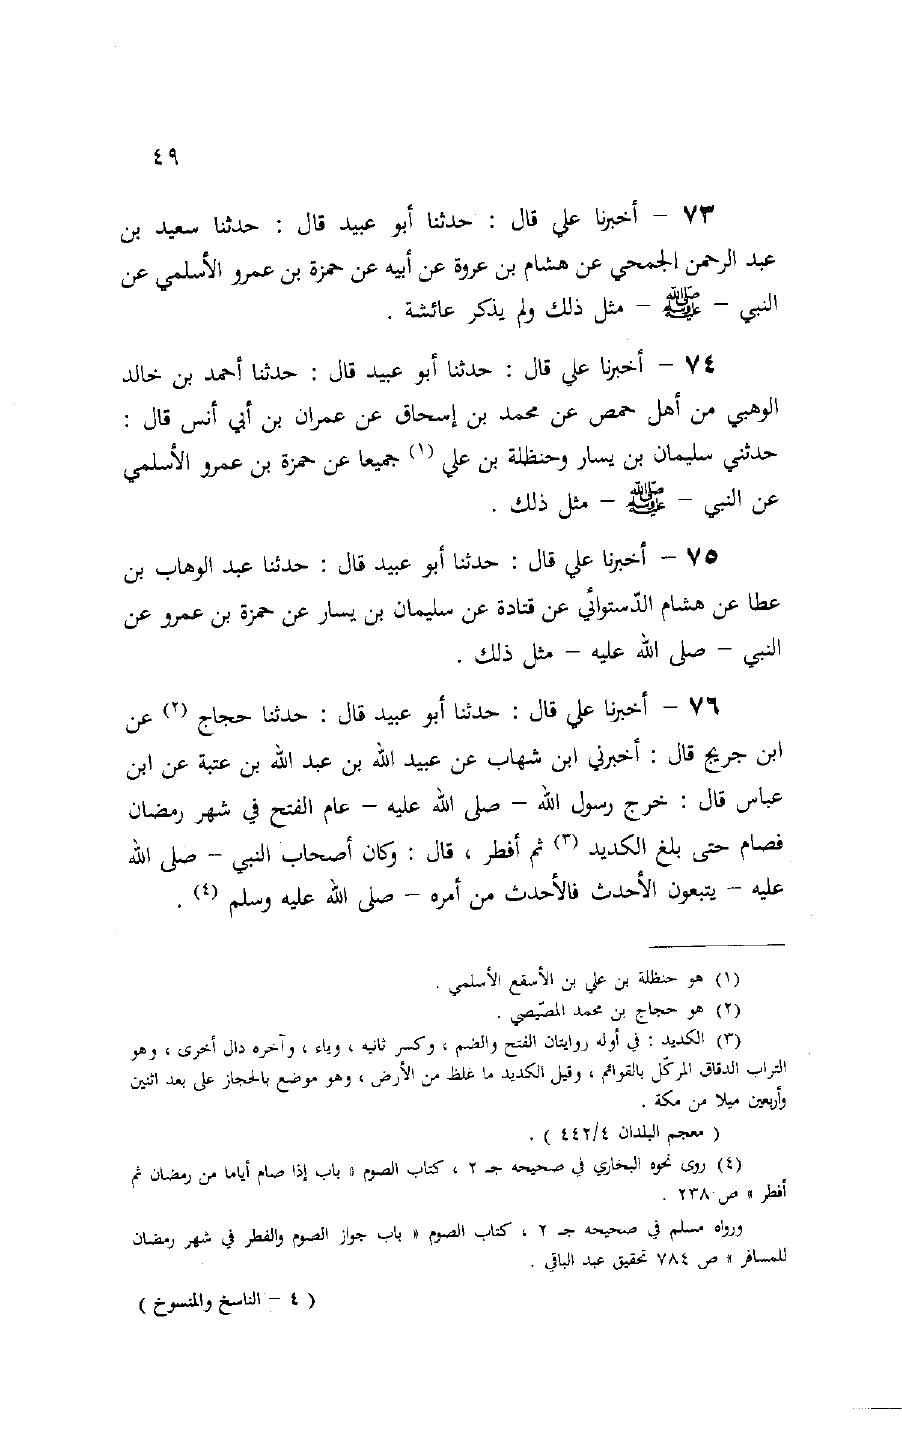 ٤٩
٧٣ – أخبرنا علي قال : حدثنا أبو عبيد قال : حدثنا سعيد بن
عبد الرحمن الجمحي عن هشام بن عروة عن أبيه عن حمزة بن عمرو الأسلمي عن
النبي – ﷺ – مثل ذلك ولم يذكر عائشة .
٧٤ – أخبرنا علي قال : حدثنا أبو عبيد قال : حدثنا أحمد بن خالد
الوهبي من أهل حمص عن محمد بن إسحاق عن عمران بن أبي أنس قال :
حدثني سليمان بن يسار وحنظلة بن علي (١) جميعا عن حمزة بن عمرو الأسلمي
عن النبي – ﷺ – مثل ذلك .
٧٥ – أخبرنا علي قال : حدثنا أبو عبيد قال : حدثنا عبد الوهاب بن
عطا عن هشام الدّستوائي عن قتادة عن سليمان بن يسار عن حمزة بن عمرو عن
النبي – صلى الله عليه – مثل ذلك .
٧٦ – أخبرنا علي قال : حدثنا أبو عبيد قال : حدثنا حجاج (٢) عن
ابن جريج قال : أخبرني ابن شهاب عن عبيد الله بن عبد الله بن عتبة عن ابن
عباس قال : خرج رسول الله – صلى الله عليه – عام الفتح في شهر رمضان
فصام حتى بلغ الكديد (٣) ثم أفطر ، قال : وكان أصحاب النبي – صلى الله
عليه – يتبعون الأحدث فالأحدث من أمره – صلى الله عليه وسلم (٤) .
(١) هو حنظلة بن علي بن الأسقع الأسلمي .
(٢) هو حجاج بن محمد المصّيصي .
(٣) الكديد : في أوله روايتان الفتح والضم ، وكسر ثانيه ، وياء ، وآخره دال أخرى ، وهو
التراب الدقاق المركّل بالقوائم ، وقيل الكديد ما غلظ من الأرض ، وهو موضع بالحجاز على بعد اثنين
وأربعين ميلا من مكة .
( معجم البلدان ٤٤٢/٤ ) .
(٤) روى نحوه البخاري في صحيحه جـ ٢ ، كتاب الصوم « باب إذا صام أياما من رمضان ثم
أفطر » ص ٢٣٨ .
ورواه مسلم في صحيحه جـ ٢ ، كتاب الصوم « باب جواز الصوم والفطر في شهر رمضان
للمسافر » ص ٧٨٤ تحقيق عبد الباقي .
( ٤ – الناسخ والمنسوخ )